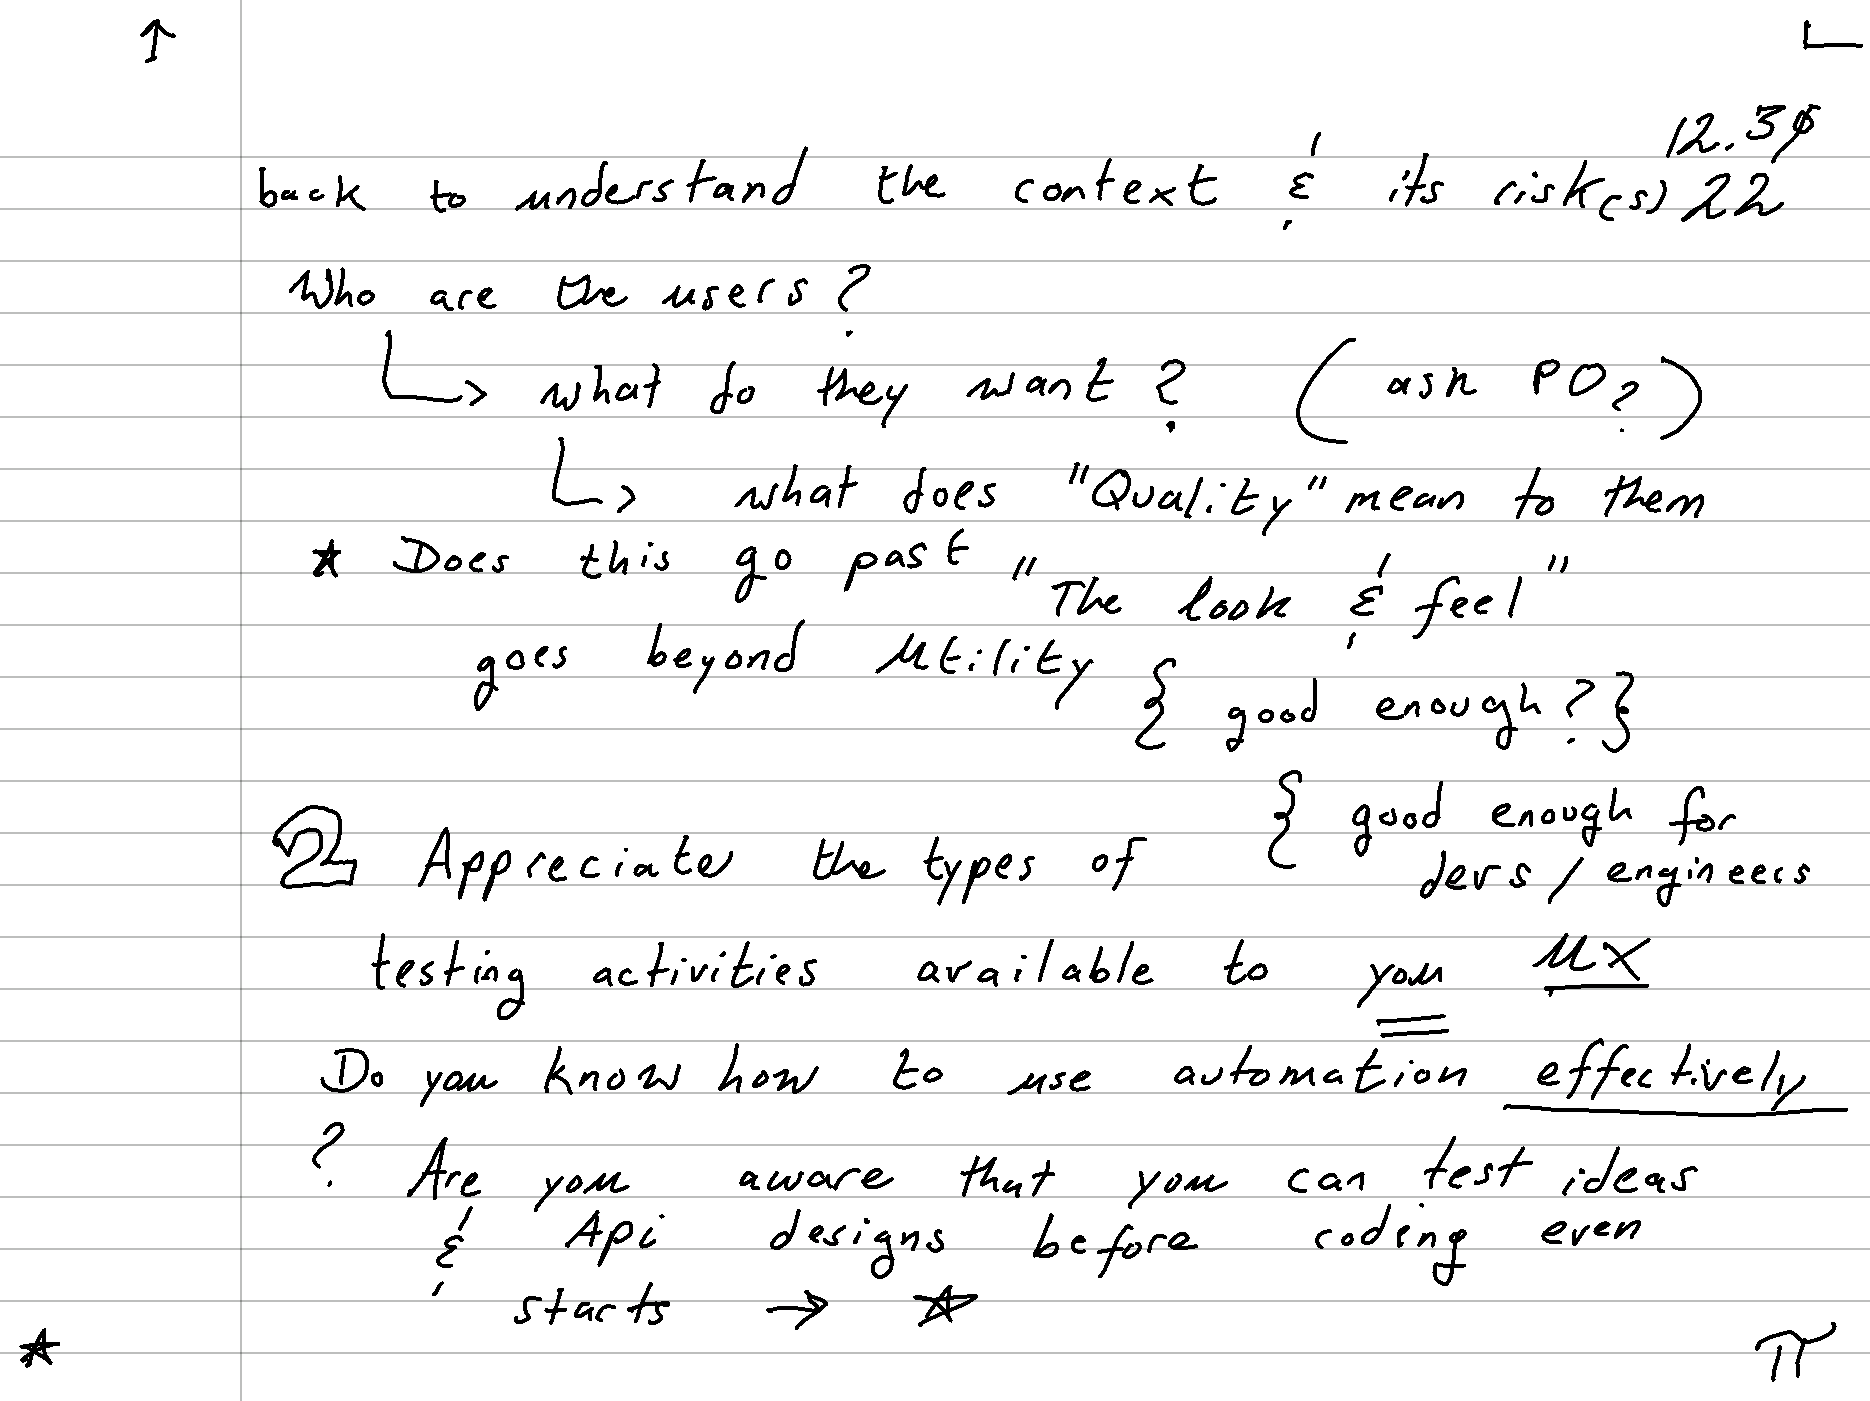 12.30
back to understand the context & its risk(s) 22
Who are the users?
↳ what do they want? (ask PO?)
↳ what does "Quality" mean to them
★ Does this go past "The look & feel"
goes beyond utility { good enough? }
{ good enough for
2 Appreciate the types of devs / engineers
testing activities available to you UX
Do you know how to use automation effectively
? Are you aware that you can test ideas
& Api designs before coding even
starts → ★
★ π